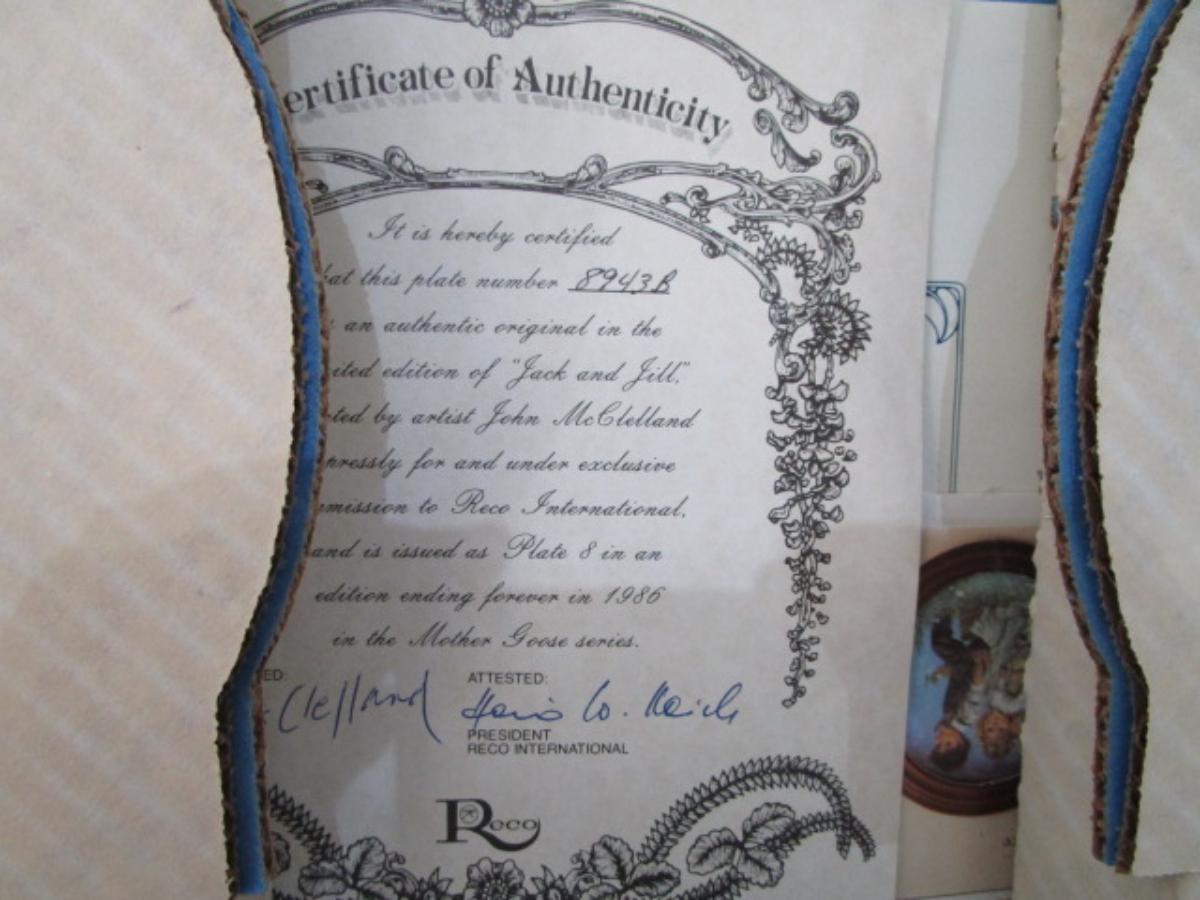 ertificate of Authenticity
It is hereby certified
hat this plate number 8943B
s an authentic original in the
ited edition of "Jack and Jill,"
ted by artist John McClelland
pressly for and under exclusive
mission to Reco International,
and is issued as Plate 8 in an
edition ending forever in 1986
in the Mother Goose series.
ED:
Clelland
ATTESTED:
PRESIDENT
RECO INTERNATIONAL
Reco